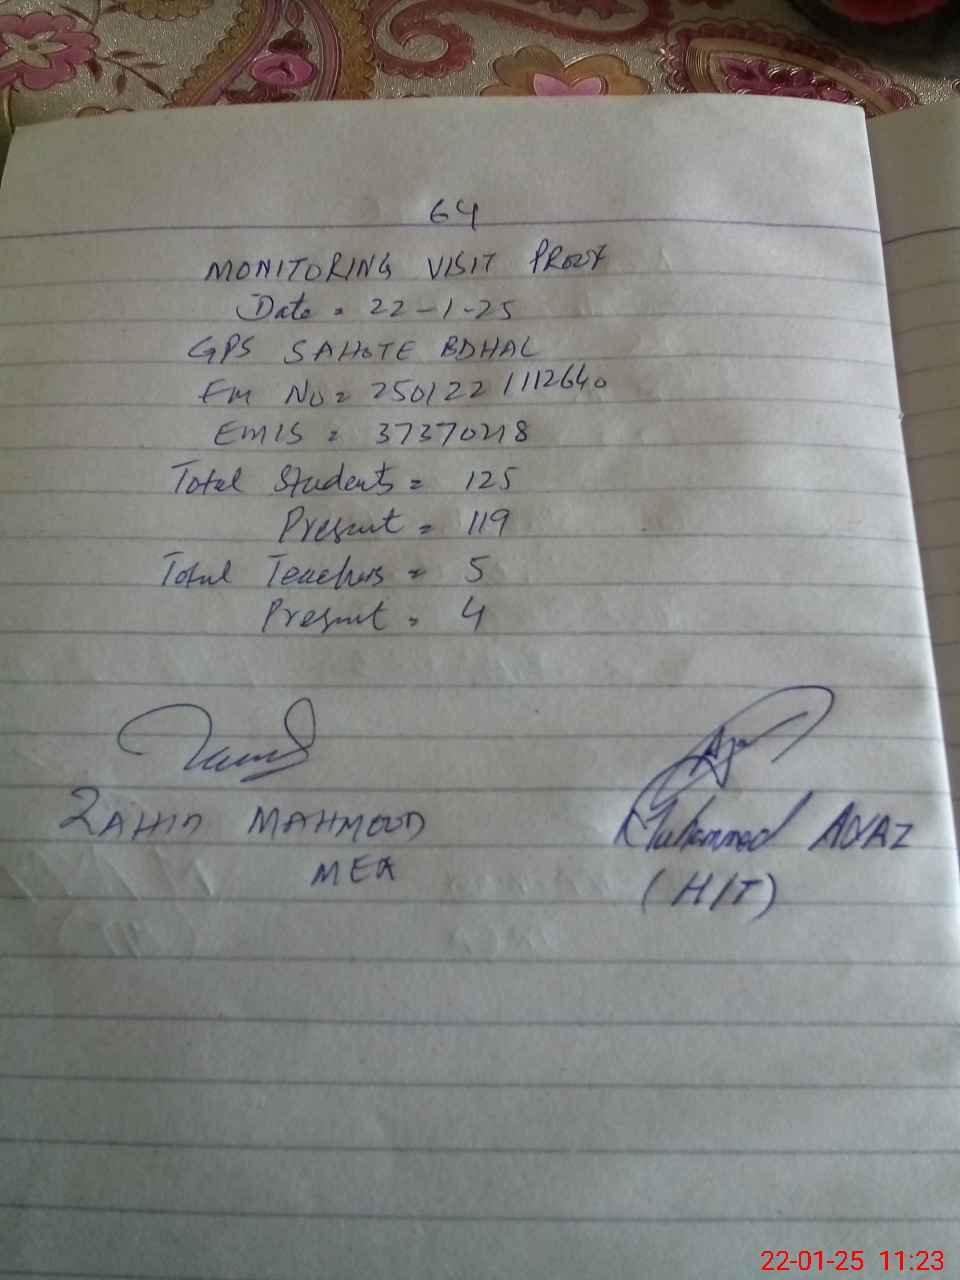 64
MONITORING VISIT PROOF
Date = 22-1-25
GPS SAHOTE BDHAL
EM No = 250122 1112640
EMIS = 37370218
Total Students = 125
Present = 119
Total Teachers = 5
Present = 4
ZAHID MAHMOOD
MEA
Muhammad
(H/T)
22-01-25 11:23